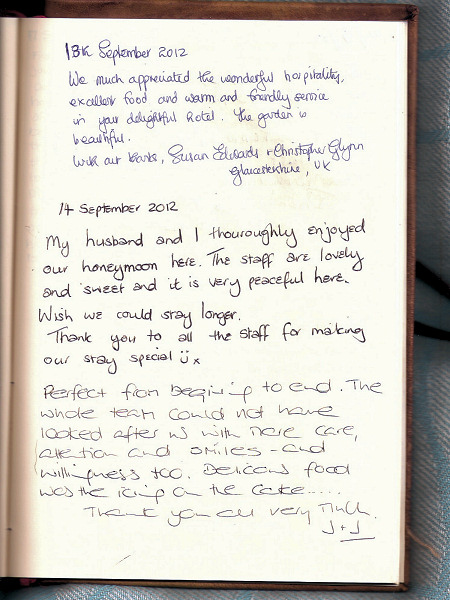 13th September 2012
We much appreciated the wonderful hospitality,
excellent food and warm and friendly service
in your delightful hotel. The garden is
beautiful.
With our thanks, Susan Edwards + Christopher Glynn
Gloucestershire, UK
14 September 2012
My husband and I thouroughly enjoyed
our honeymoon here. The staff are lovely
and sweet and it is very peaceful here.
Wish we could stay longer.
Thank you to all the staff for making
our stay special ü x
Perfect from begining to end. The
whole team could not have
looked after us with more care,
attention and smiles - and
willingness too. Delicious food
was the icing on the cake.....
Thank you all very much.
J + J